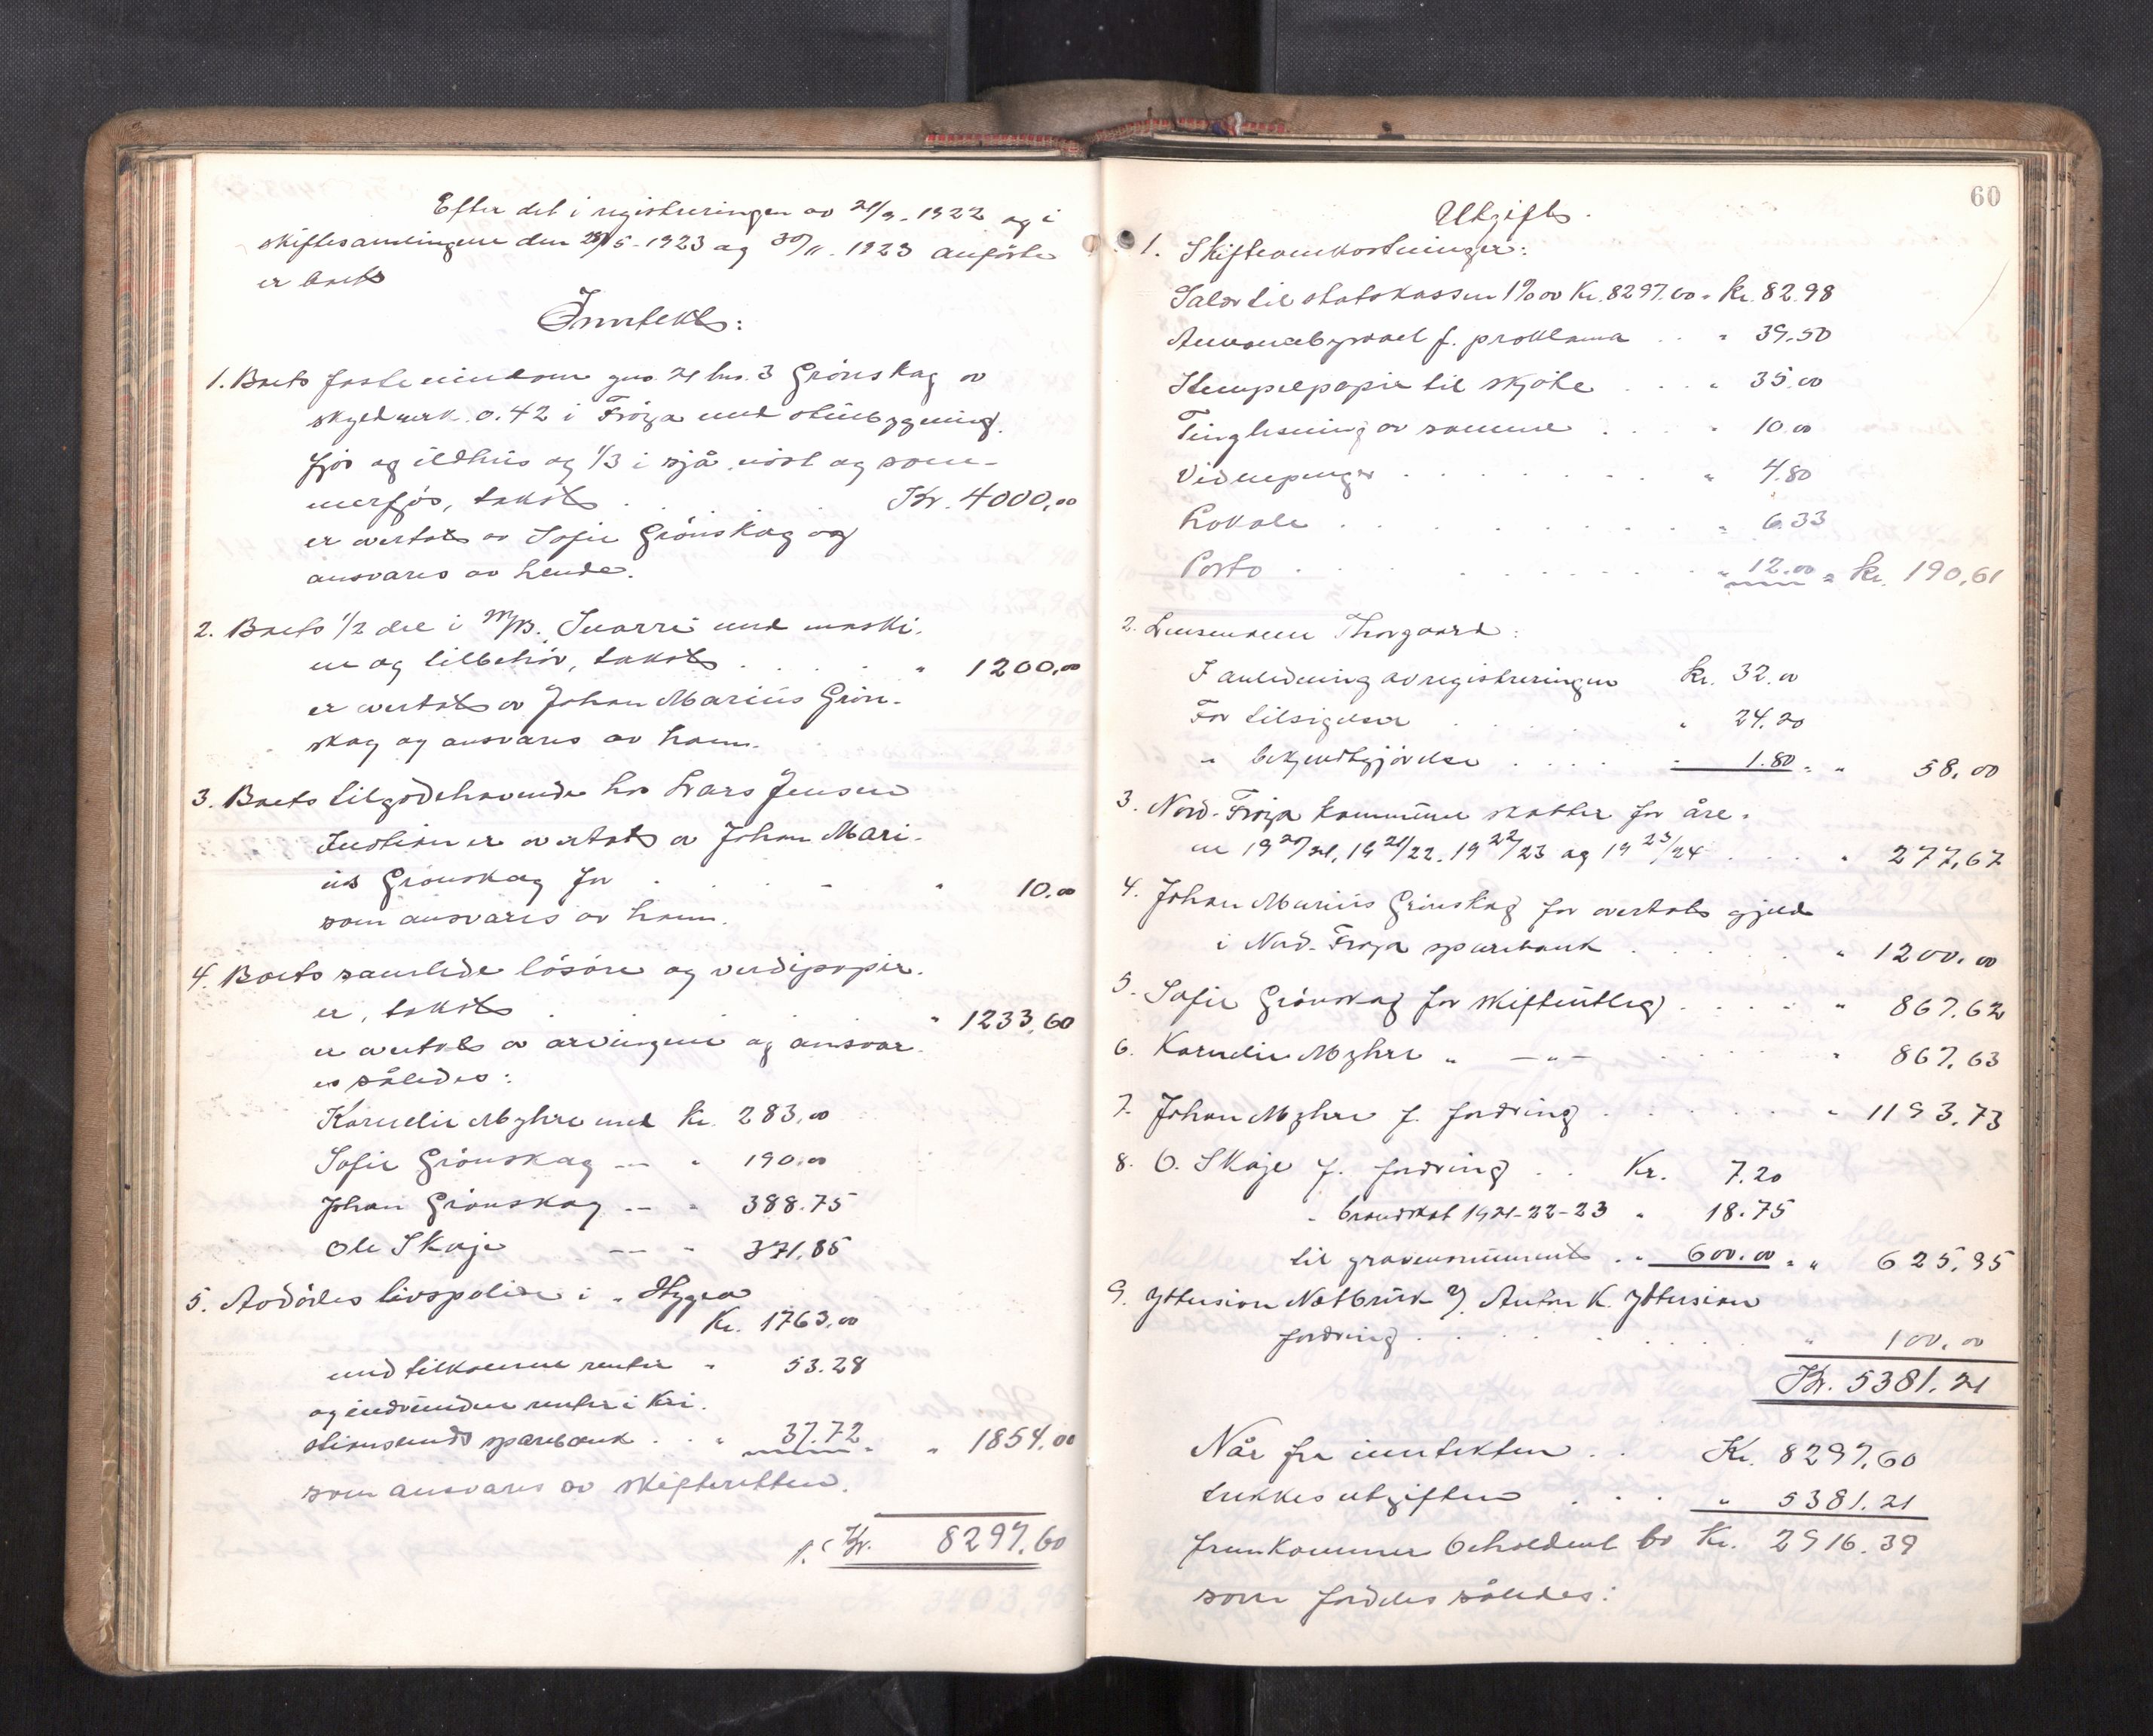 Efter det i registreringen av 21/9-1922 og i
skiftesamlingene den 28/5-1923 og 30/11-1923 anförte
er boets
Inntekt:
1. Boets faste eiendom gno. 21 bno. 3 Grönskag av
skyld mrk. 0.42 i Fröya med stuebygning,
fjös og ildhus og 1/3 i sjå, nöst og som-
merfjös, takst . . . Kr. 4000,00
er overtat av Sofie Grönskag og
ansvares av hende.
2. Boets 1/2 del i M/B. Snarri med maski-
ne og tilbehör, takst . . . . " 1200,00
er overtat av Johan Marius Grön-
skag og ansvares av ham.
3. Boets tilgodehavende hos Lars Jensen
Inntian er overtat av Johan Mari-
us Grönskag for . . . " 10.00
som ansvares av ham.
4. Boets samlede lösöre og verdipapir-
er, takst . . . . " 1233,60
er overtat av arvingene og ansvar-
es således:
Kornelie Myhre med Kr. 283,00
Sofie Grönskag — " 190.00
Johan Grönskag — " 388.75
Ole Skaje — " 371,85
5. Avdödes livspolise i "Hygea
Kr. 1763,00
med tilkomne renter " 53.28
og indvundne renter i Kri-
stiansunds sparebank . . " 37.72 " " 1854,00
som ansvares av skifteretten.
Kr. 8297,60
60
Utgift.
1. Skifteomkostninger:
Salær til statskassen 1% av Kr. 8297.60 = Kr. 82.98
Annonsebyraaet f. proklama . . " 39.50
Stempelpapir til skjöte . . . " 35.00
Tinglesning av samme . . . " 10.00
Vidnepenger . . . . . " 4.80
Lokale . . . . . . " 6.33
Porto . . . . . . " 12.00 = Kr. 190,61
2. Lensmann Thorgaard:
I anledning av registreringen Kr. 32.00
For tilsigelser . . . " 24.20
" bekjendtgjörelse . . . . " 1.80 = " 58,00
3. Nord-Fröya kommune skatter for åre-
ne 1920/21, 1921/22, 1922/23 og 1923/24 . . . . " 277,67
4. Johan Marius Grönskag for overtat gjeld
i Nord-Fröya sparebank . . . . . " 1200.00
5. Sofie Grönskag for skifteutlæg . . . . " 867.62
6. Kornelie Myhre " —"— . . . . " 867,63
7. Johan Myhre f. fordring . . . . . " 1193.73
8. O. Skaje f. fordring . . Kr. 7.20
" brandskat 1921-22-23 " 18.75
til gravmonument . " 600.00 = " 625,95
9. Yttersian Notbruk v/ Anton K. Yttersian
fordring . . . . . . " 100.00
Kr. 5381.21
Når fra inntekten . . Kr. 8297,60
trekkes utgiften . . . " 5381.21
fremkommer beholdent bo Kr. 2916.39
som fordeles således: